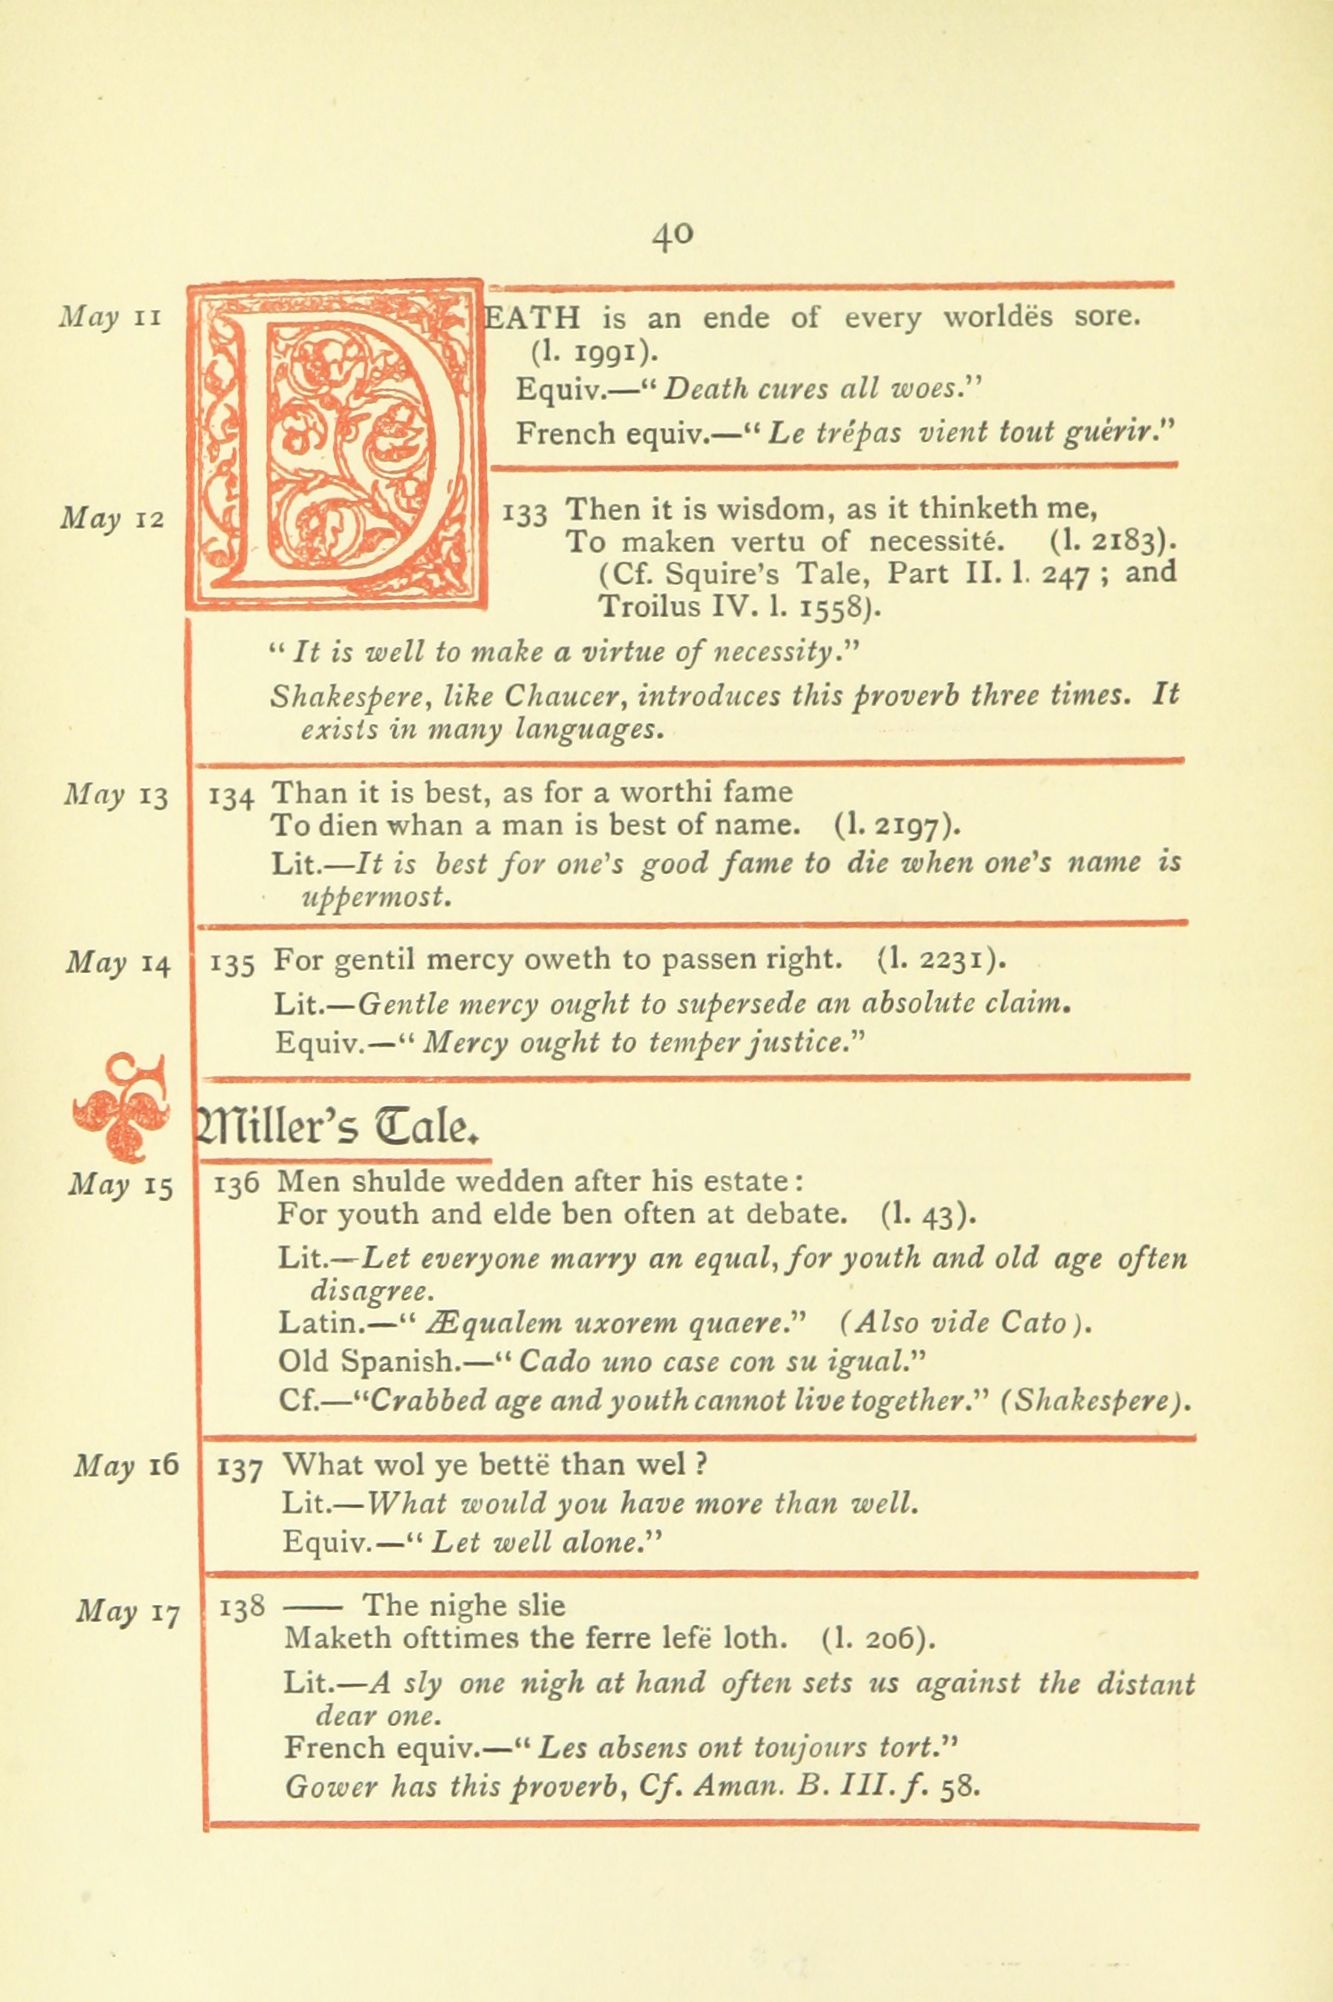 40
May 11 DEATH is an ende of every worldës sore.
(l. 1991).
Equiv.—“Death cures all woes.”
French equiv.—“Le trépas vient tout guérir.”
May 12 133 Then it is wisdom, as it thinketh me,
To maken vertu of necessité. (l. 2183).
(Cf. Squire's Tale, Part II. l. 247 ; and
Troilus IV. l. 1558).
“It is well to make a virtue of necessity.”
Shakespere, like Chaucer, introduces this proverb three times. It
exists in many languages.
May 13 134 Than it is best, as for a worthi fame
To dien whan a man is best of name. (l. 2197).
Lit.—It is best for one's good fame to die when one's name is
uppermost.
May 14 135 For gentil mercy oweth to passen right. (l. 2231).
Lit.—Gentle mercy ought to supersede an absolute claim.
Equiv.—“Mercy ought to temper justice.”
Miller's Tale.
May 15 136 Men shulde wedden after his estate :
For youth and elde ben often at debate. (l. 43).
Lit.—Let everyone marry an equal, for youth and old age often
disagree.
Latin.—“Æqualem uxorem quaere.” (Also vide Cato).
Old Spanish.—“Cado uno case con su igual.”
Cf.—“Crabbed age and youth cannot live together.” (Shakespere).
May 16 137 What wol ye bettë than wel ?
Lit.—What would you have more than well.
Equiv.—“Let well alone.”
May 17 138 —— The nighe slie
Maketh ofttimes the ferre lefë loth. (l. 206).
Lit.—A sly one nigh at hand often sets us against the distant
dear one.
French equiv.—“Les absens ont toujours tort.”
Gower has this proverb, Cf. Aman. B. III. f. 58.